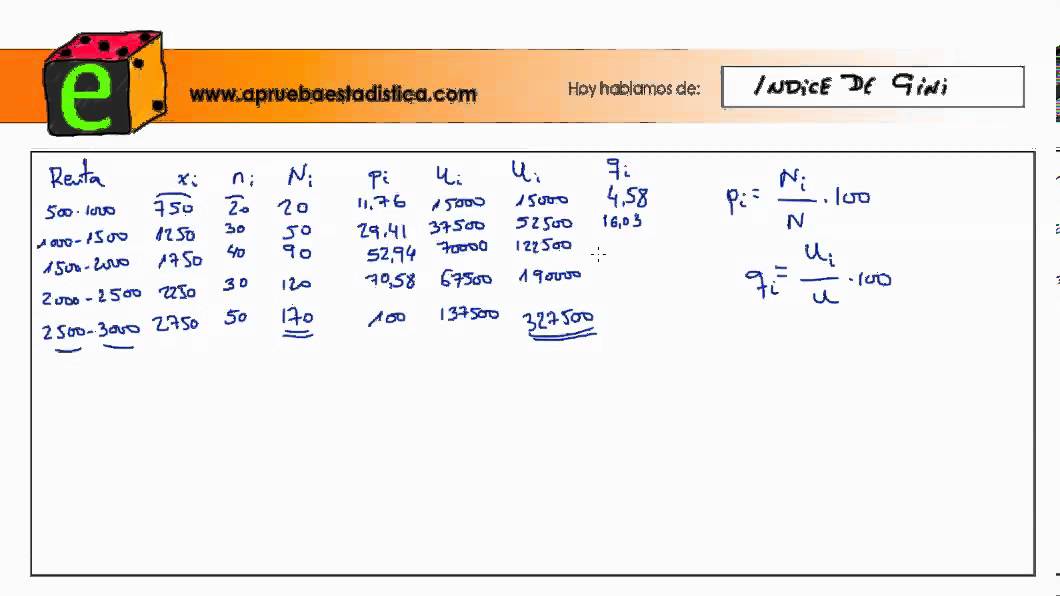 e
www.apruebaestadistica.com
Hoy hablamos de:
INDICE DE GINI
Renta xi ni Ni pi ui Ui qi
500-1000 750 20 20 11,76 15000 15000 4,58
1000-1500 1250 30 50 29,41 37500 52500 16,03
1500-2000 1750 40 90 52,94 70000 122500
2000-2500 2250 30 120 70,58 67500 190000
2500-3000 2750 50 170 100 137500 327500
pi = Ni / N · 100
qi = Ui / U · 100